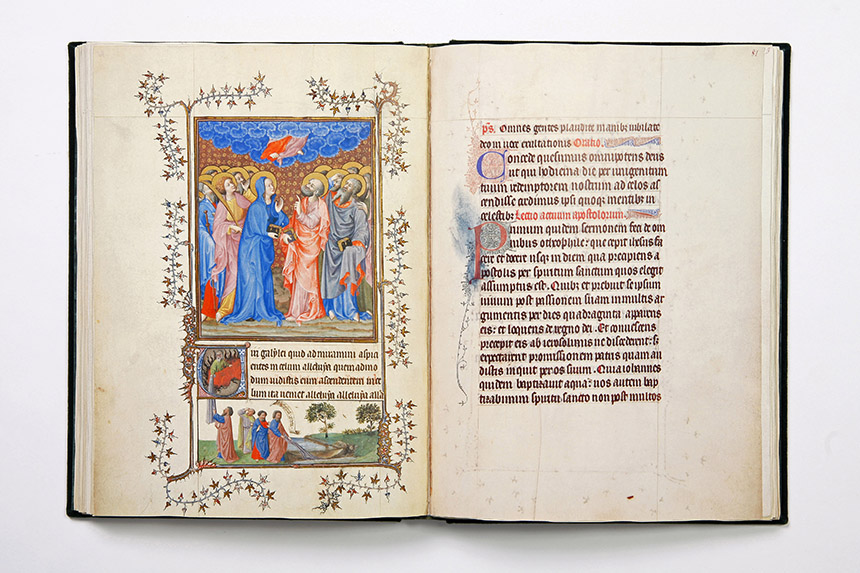 iri galylei quid admiramini aspici
entes in celum alleluya quemadmo
dum vidistis eum ascendentem in ce
lum ita veniet alleluya alleluya alla
ps. Omnes gentes plaudite manibz iubilate
deo in uoce exultationis Oratio.
Concede quesumus omnipotens deus
ut qui hodierna die per unigenitum
tuum redemptorem nostrum ad celos as
cendisse credimus ipsi quoqz mentibz in
celestibz Lectio actuum apostolorum.
Primum quidem sermonem feci de om
nibus o theophile: que cepit ihesus fa
cere et docere usqz in diem qua precipiens a
postolis per spiritum sanctum quos elegit
assumptus est. Quibz et prebuit se ipsum
uiuum post passionem suam in multis ar
gumentis per dies quadraginta apparens
eis: et loquens de regno dei. Et conuescens
precepit eis ab iherosolimis ne discederent: sz
expectarent promissionem patris quam au
distis inquit per os suum. Quia iohannes
quidem baptizauit aqua: uos autem bap
tizabimini spiritu sancto non post multos